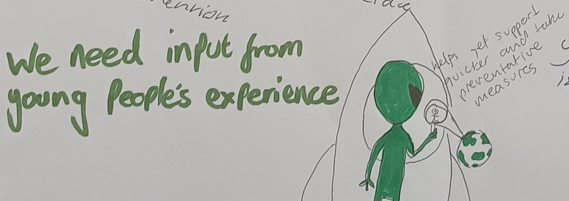 We need input from
young People's experience
helps get support
quicker and take
preventative
measures